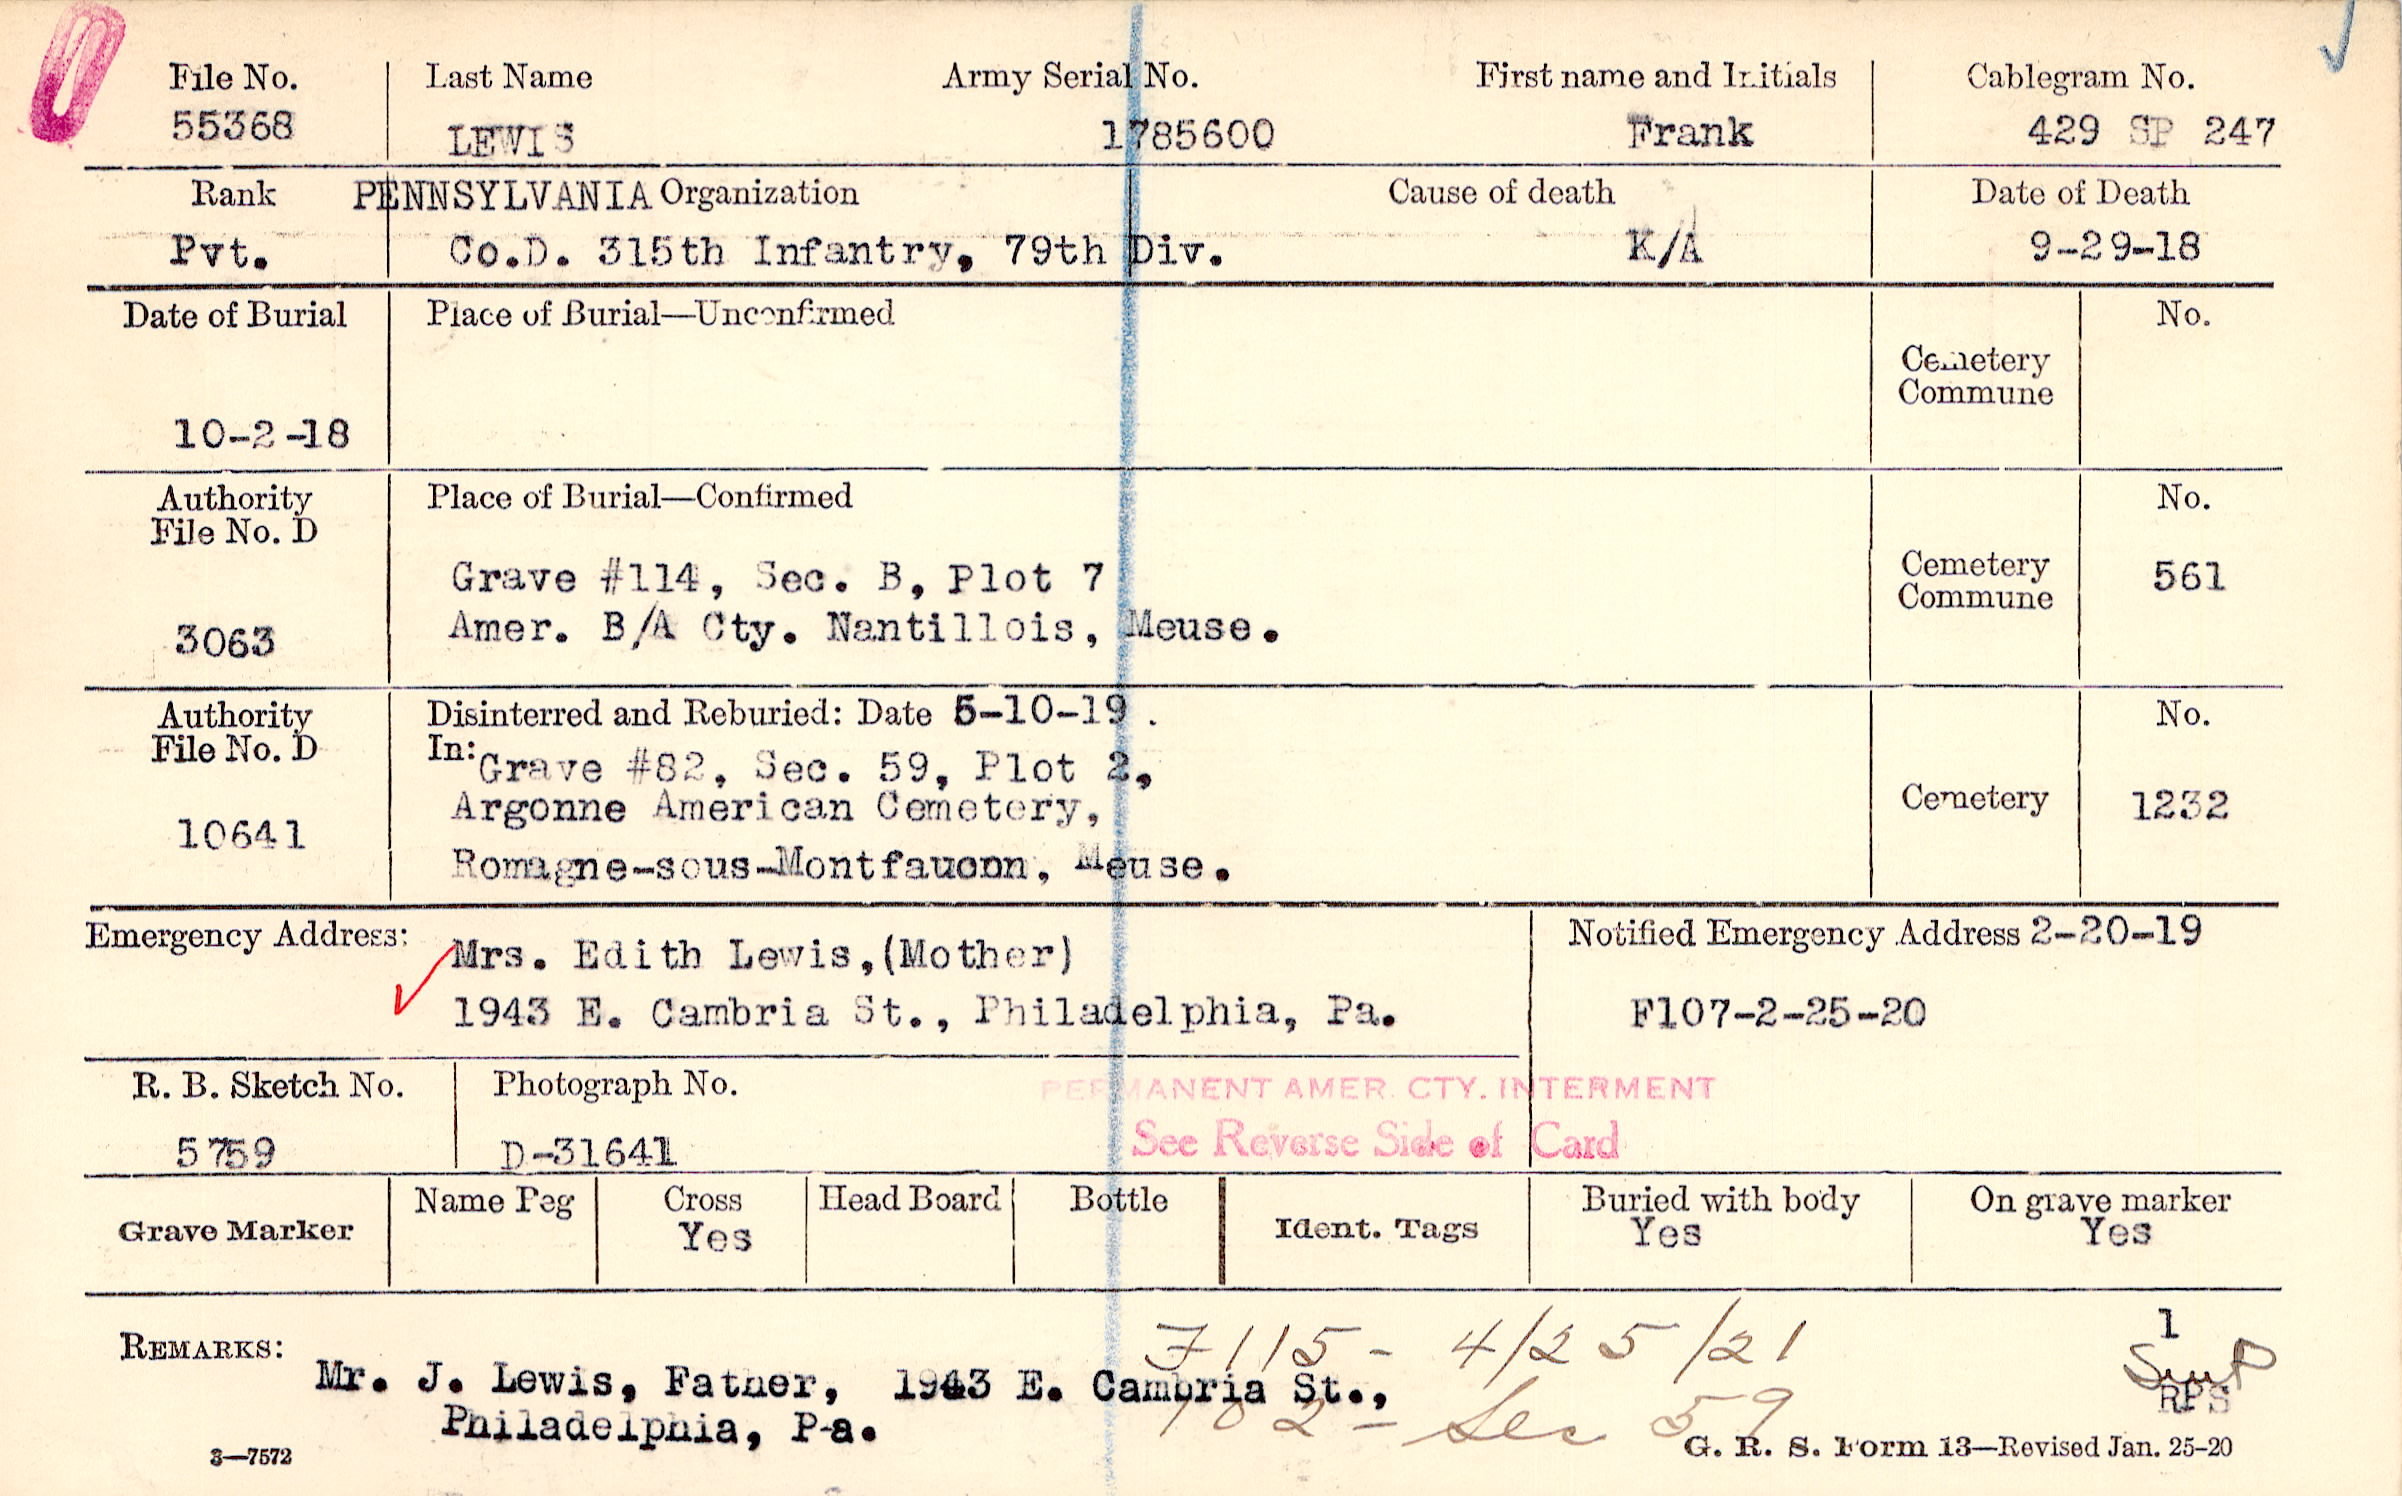 File No. Last Name Army Serial No. First name and Initials Cablegram No.
55368 LEWIS 1785600 Frank 429 SP 247
Rank PENNSYLVANIA Organization Cause of death Date of Death
Pvt. Co.D. 315th Infantry, 79th Div. K/A 9-29-18
Date of Burial Place of Burial—Unconfirmed No.
Cemetery
Commune
10-2-18
Authority Place of Burial—Confirmed No.
File No. D
Grave #114, Sec. B, Plot 7 Cemetery 561
Commune
3063 Amer. B/A Cty. Nantillois, Meuse.
Authority Disinterred and Reburied: Date 5-10-19 . No.
File No. D In:
Grave #82, Sec. 59, Plot 2,
10641 Argonne American Cemetery, Cemetery 1232
Romagne-sous-Montfaucon, Meuse.
Emergency Address: Mrs. Edith Lewis,(Mother) Notified Emergency Address 2-20-19
1943 E. Cambria St., Philadelphia, Pa. F107-2-25-20
R. B. Sketch No. Photograph No. PERMANENT AMER. CTY. INTERMENT
5759 D-31641 See Reverse Side of Card
Grave Marker Name Peg Cross Head Board Bottle Ident. Tags Buried with body On grave marker
Yes Yes Yes
7115- 4/25/21 1
REMARKS: Mr. J. Lewis, Father, 1943 E. Cambria St.,
RPS
Philadelphia, Pa. 102- Sec 59
3—7572 G. R. S. Form 13—Revised Jan. 25-20